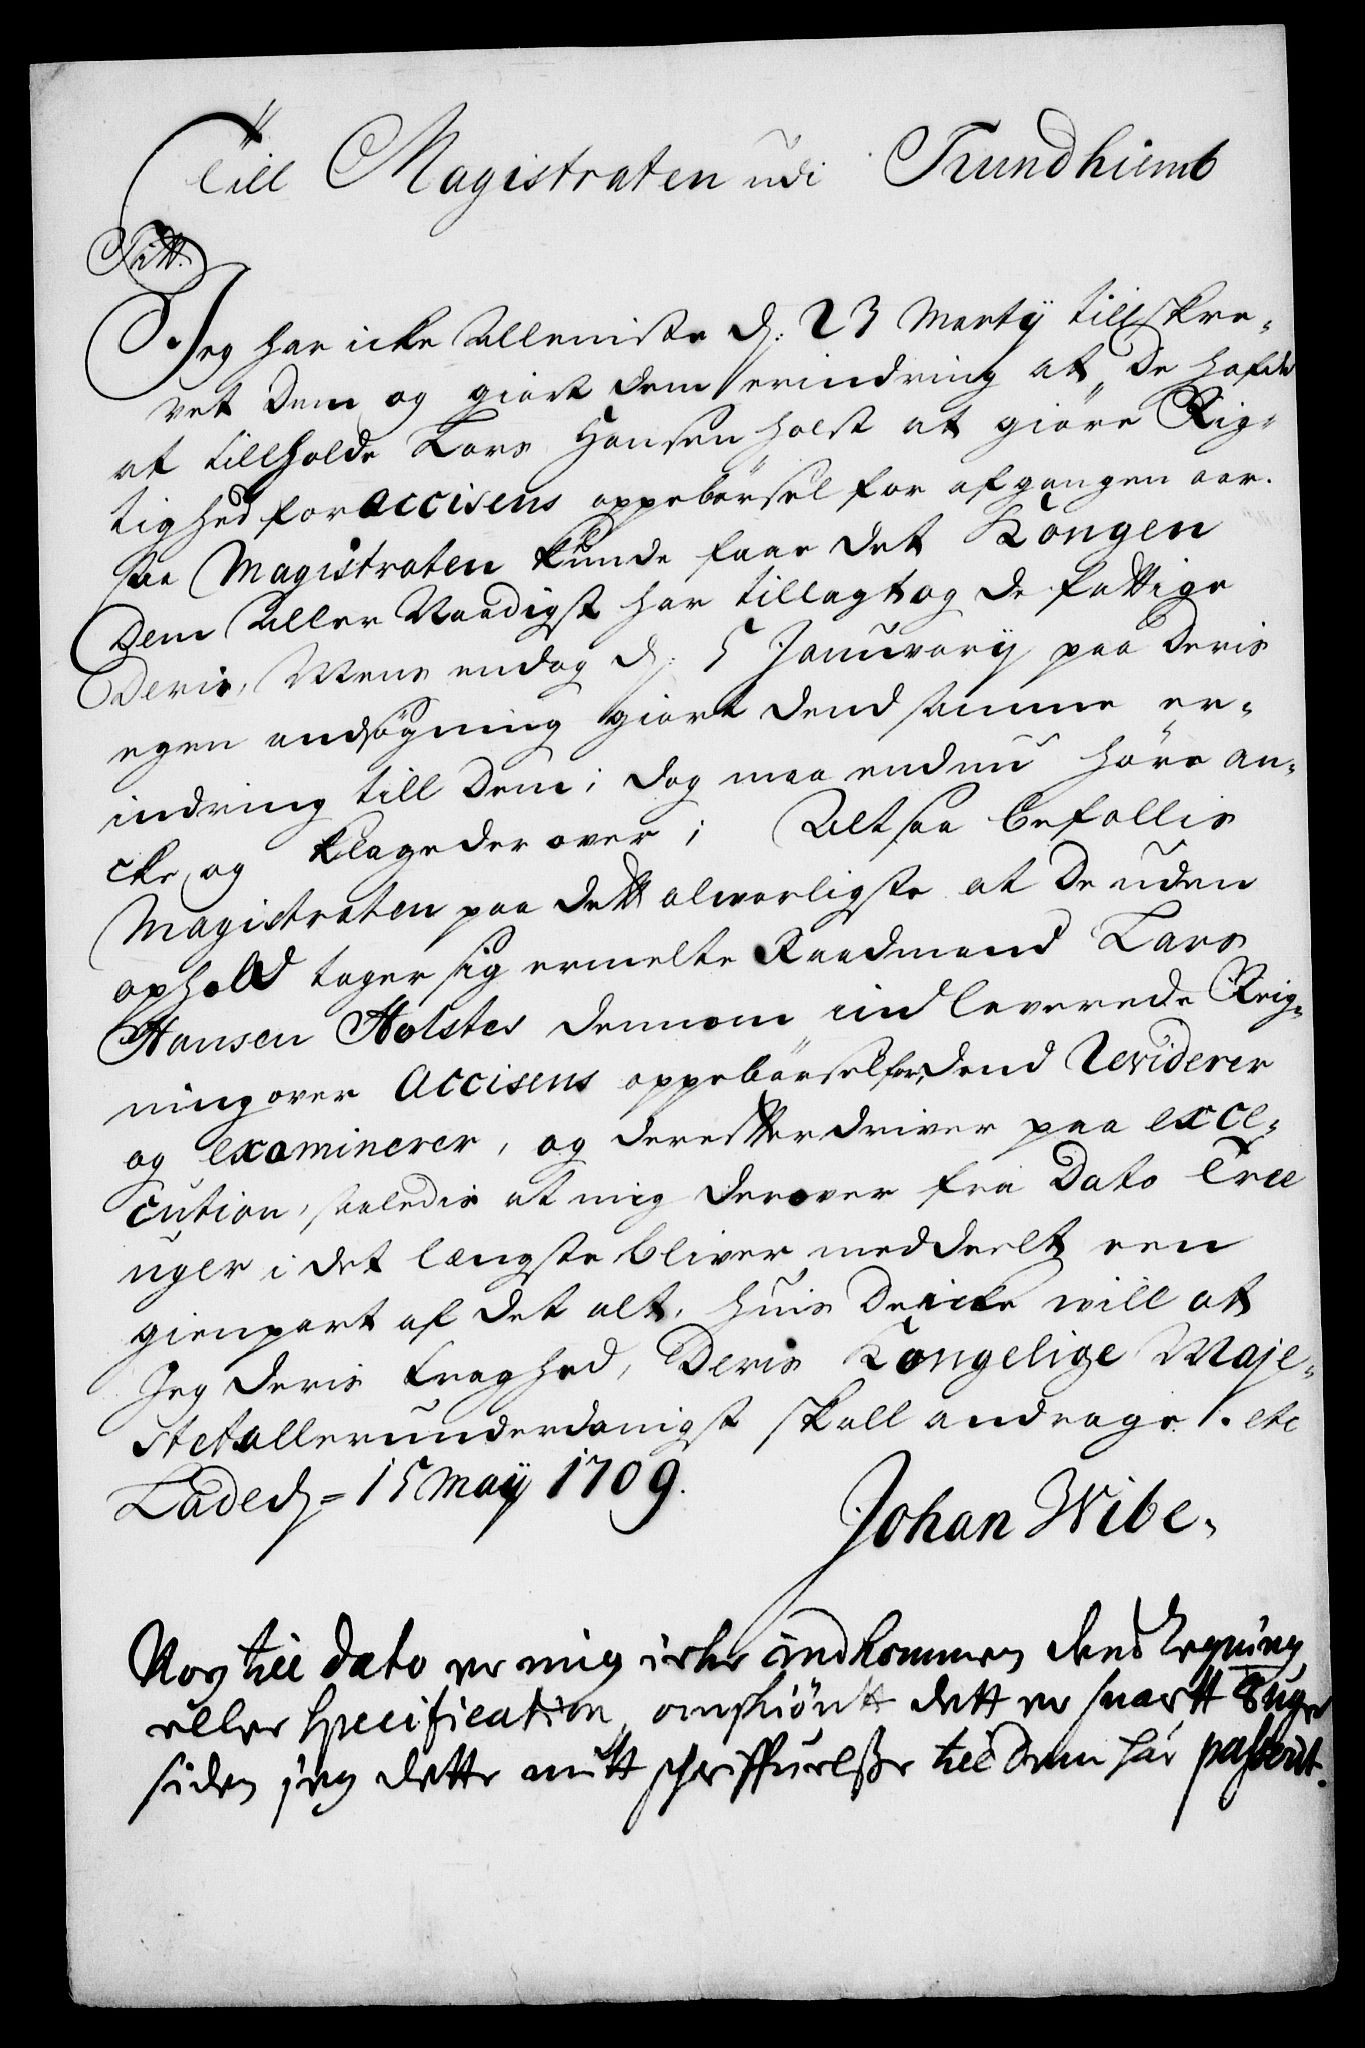 Till Magistraten udi Trundhiemb
Titt.
Jeg har icke Alleniste d: 23 Marty tillskre-
vet Dem og giort dem erindring at De hafde
at tillholde Lars Hansen Holst at giöre Rig-
tighed for accisens oppebörsel for afgangen aar.
saa Magistraten kunde faae det Kongen
Dem Aller Naadigst har tillagt og de fattige
Deris, Mens endog d: 5 Januuary paa Deris
egen ansögning giort dend samme er-
indring till Dem; dog maa endnu höre an-
cke og klage der over; Altsaa befallis
Magistraten paa dett alvorligste at De uden
ophold tager sig ermelte Raadmand Lars
Hansen Holstes dennom indleverede Reig-
ning over Accisens oppebörsel for, dend Reviderer
og examinerer, og derefter driver paa exe-
cution, saaledis at mig derover fra Dato Tree
uger i det længste bliver meddeelt een
gienpart af det alt, huis De icke will at
Jeg deris traghed, Deris Kongelige Maje-
stet allerunderdanigst skall andrage. etc
Lade d= 15 May 1709.
Johan Wibe.
Nog till dato er mig icke indkommen dend Regning
eller Specification, omskiöntt dett er snartt 8 uger
siden jeg dette mitt schriffuelße till dem har passerit.